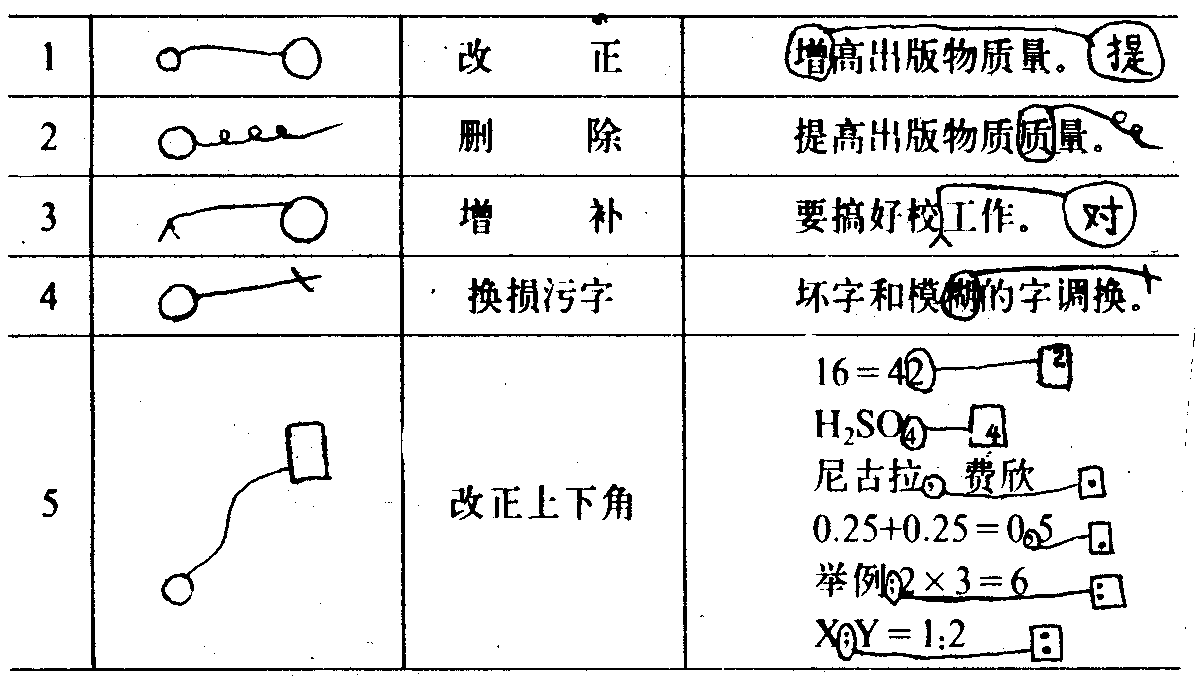 1 改正 增高出版物质量。 提
2 删除 提高出版物质质量。
3 增补 要搞好校工作。 对
4 换损污字 坏字和模糊的字调换。
5 改正上下角
16=42 2
H₂SO4 4
尼古拉. 费欣 ·
0.25+0.25=0.5 .
举例:2×3=6 :
X:Y=1:2 :